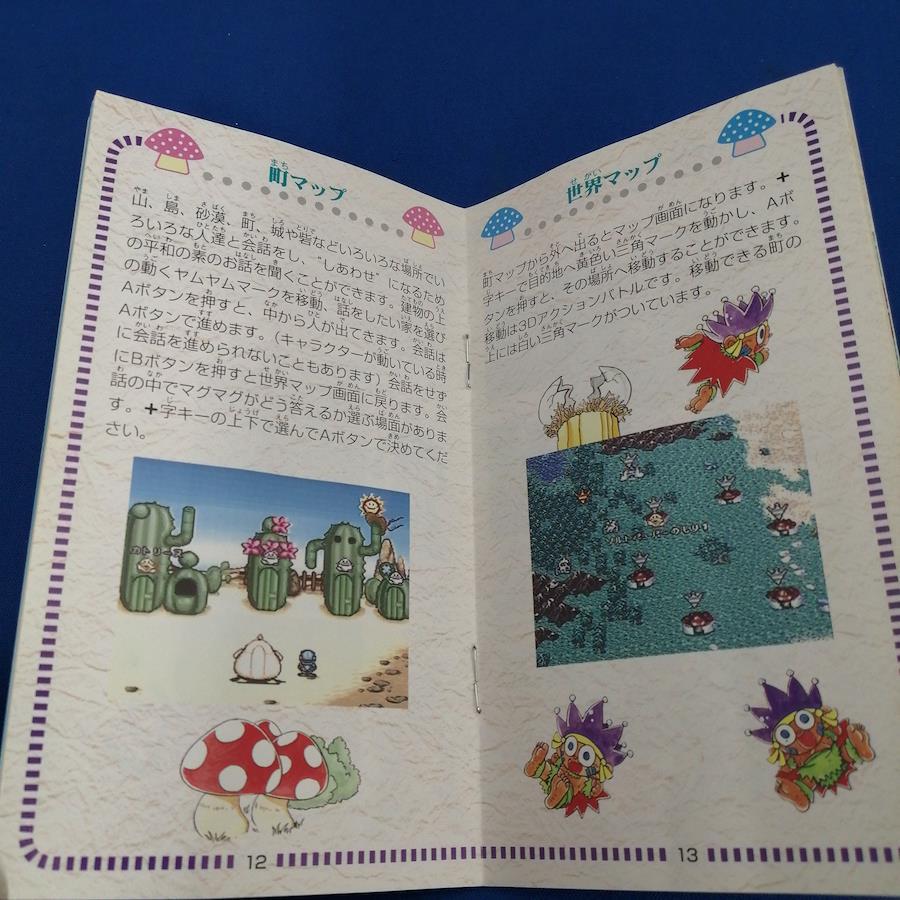 町マップ
山、島、砂漠、町、城や砦などいろいろな場所でい
ろいろな人達と会話をし、“しあわせ”になるため
の平和の素のお話を聞くことができます。建物の上
の動くヤムヤムマークを移動、話をしたい家を選び
Aボタンを押すと、中から人が出てきます。会話は
Aボタンで進めます。(キャラクターが動いている時
に会話を進められないこともあります)会話をせず
にBボタンを押すと世界マップ画面に戻ります。会
話の中でマグマグがどう答えるか選ぶ場面がありま
す。✚字キーの上下で選んでAボタンで決めてくだ
さい。
カトリーヌ
12
世界マップ
町マップから外へ出るとマップ画面になります。✚
字キーで目的地へ黄色い三角マークを動かし、Aボ
タンを押すと、その場所へ移動することができます。
移動は3Dアクションバトルです。移動できる町の
上には白い三角マークがついています。
13